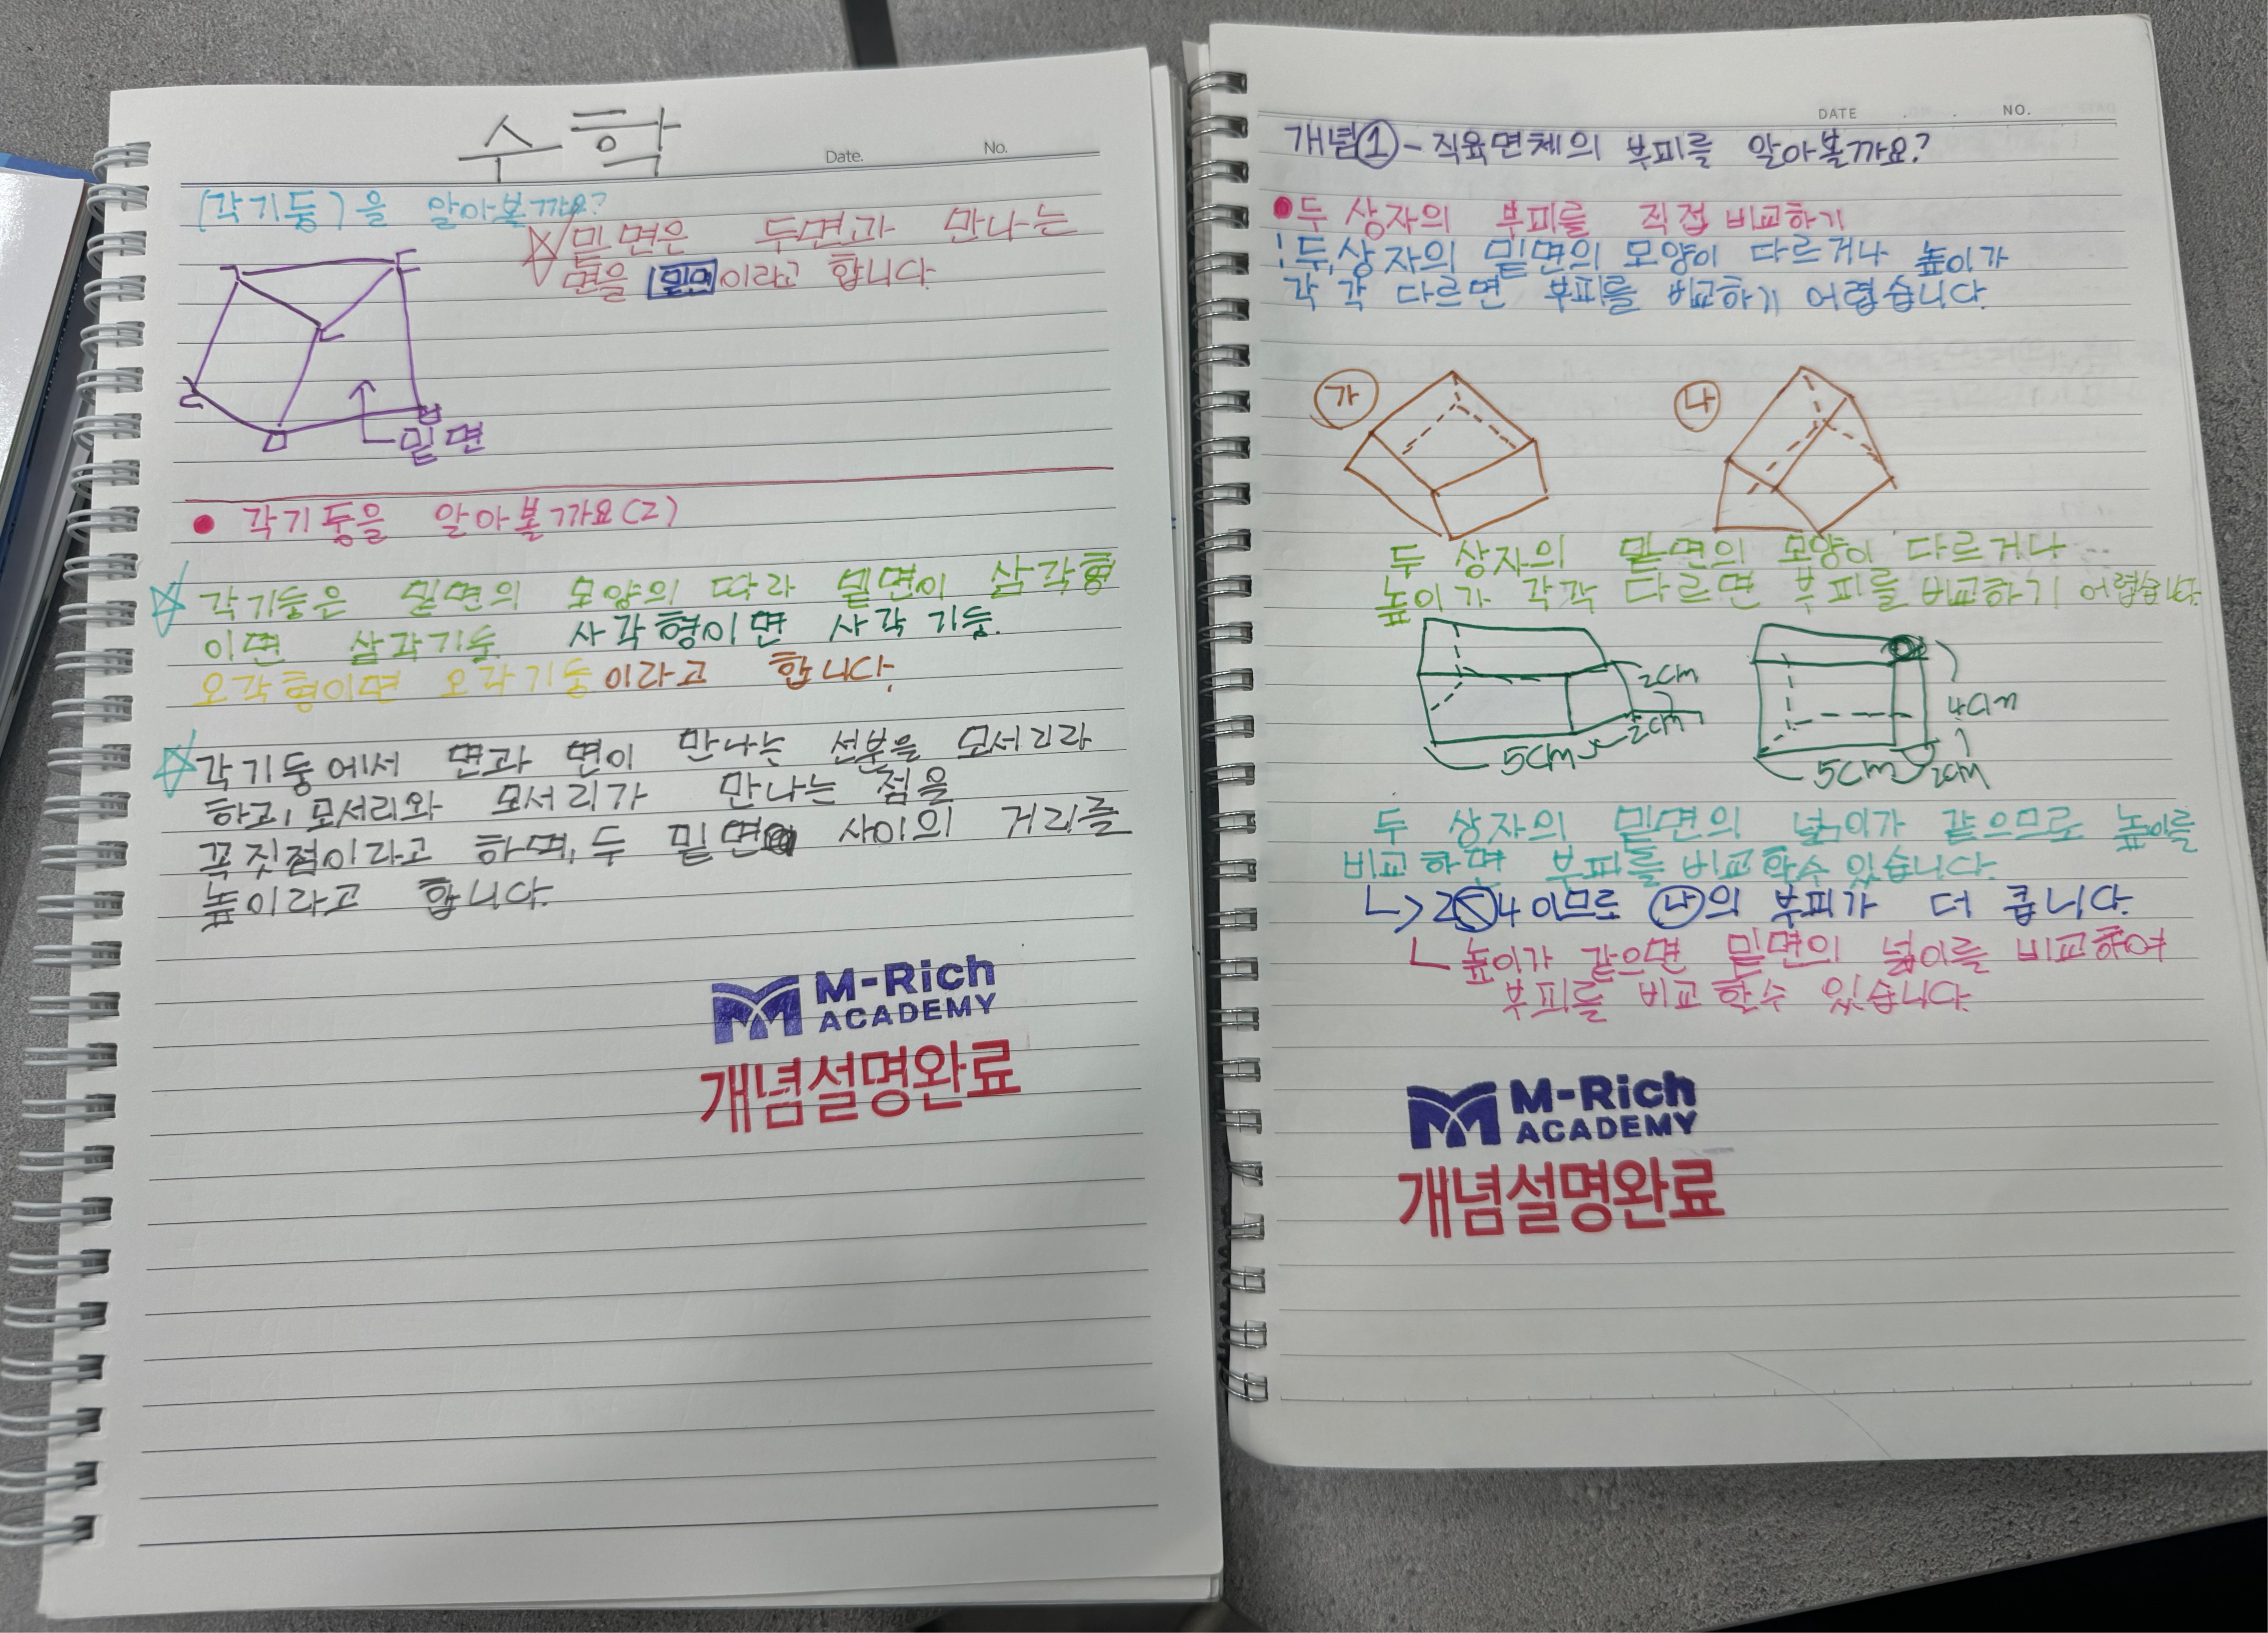 수학
Date.
No.
(각기둥)을 알아볼까요?
밑면은 두면과 만나는
면을 밑면이라고 합니다.
ㄱ
ㄷ
ㄴ
ㄹ
ㅁ
ㅂ
밑면
각기둥을 알아볼까요(2)
각기둥은 밑면의 모양의 따라 밑면이 삼각형
이면 삼각기둥. 사각형이면 사각기둥.
오각형이면 오각기둥이라고 합니다.
각기둥에서 면과 면이 만나는 선분을 모서리라
하고, 모서리와 모서리가 만나는 점을
꼭짓점이라고 하며, 두 밑면 사이의 거리를
높이라고 합니다.
M-Rich
ACADEMY
개념설명완료
DATE . . NO.
개념①-직육면체의 부피를 알아볼까요?
두 상자의 부피를 직접 비교하기
! 두,상자의 밑면의 모양이 다르거나 높이가
각 각 다르면 부피를 비교하기 어렵습니다.
㉮
㉯
두 상자의 밑면의 모양이 다르거나...
높이가 각각 다르면 부피를 비교하기 어렵습니다.
2cm
2cm
5cm
4cm
5cm
2cm
두 상자의 밑면의 넓이가 같으므로 높이를
비교하면 부피를 비교할수 있습니다.
↳ 2<4 이므로 ㉯의 부피가 더 큽니다.
ㄴ 높이가 같으면 밑면의 넓이를 비교하여
부피를 비교 할수 있습니다.
M-Rich
ACADEMY
개념설명완료